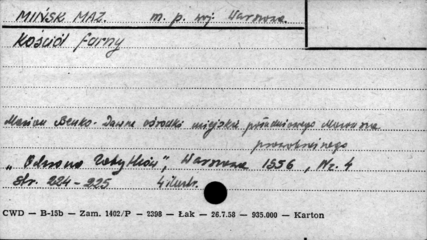 MIŃSK MAZ. m. p. woj. Warszawa
Kościół farny
Marian Benko - Dawne ośrodki miejskie południowego Mazowsza
„Ochrona Zabytków”, Warszawa 1956, Nr. 4
str. 224-225 4 ilustr.
CWD — B-15b — Zam. 1402/P — 2398 — Łak — 26.7.58 — 935.000 — Karton